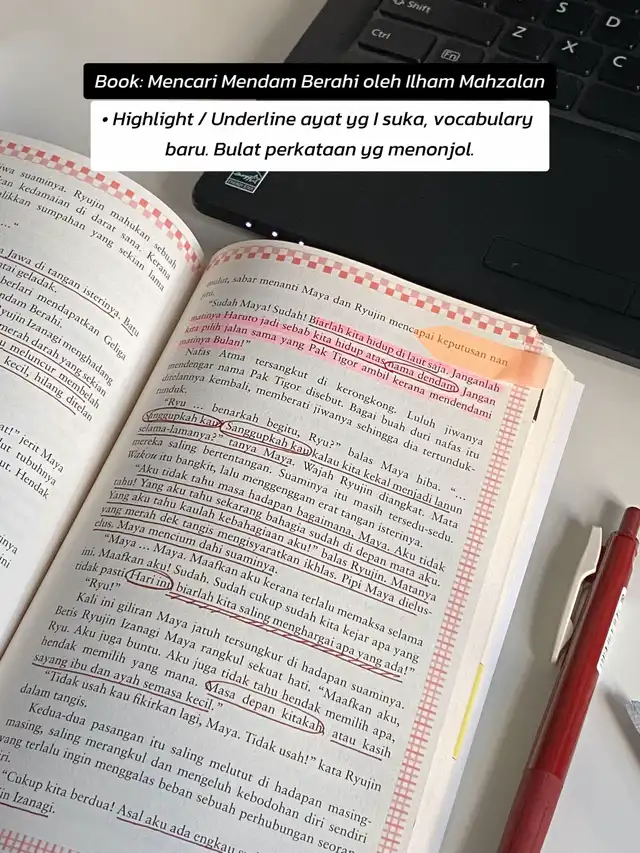 Shift
Ctrl
Fn
S
D
Z
X
C
Book: Mencari Mendam Berahi oleh Ilham Mahzalan
• Highlight / Underline ayat yg I suka, vocabulary
baru. Bulat perkataan yg menonjol.
suaminya. Ryujin mahukan sebuah
kedamaian di darat sana. Kerana
sumpahan yang sekian lama
Jawa di tangan isterinya. Batu
geladak.
berlari mendapatkan Geliga
Berahi.
Izanagi mengandang
merah darah yang sekian
meluncur membelah
kecil, hilang ditelan
jerit Maya
tubuhnya
Hendak
mulut, sabar menanti Maya dan Ryujin mencapai keputusan nan
"Sudah Maya! Sudah! Biarlah kita hidup di laut saja. Janganlah
matinya Haruto jadi sebab kita hidup atas nama dendam. Jangan
kita pilih jalan sama yang Pak Tigor ambil kerana mendendami
matinya Bulan!"
Nafas Atma tersangkut di kerongkong. Luluh jiwanya
mendengar nama Pak Tigor disebut. Bagai buah duri nafas itu
ditelannya kembali, memberati jiwanya sehingga dia tertunduk-
tunduk.
"Ryu ... benarkah begitu, Ryu?" balas Maya hiba. "...
Sanggupkah kau, Sanggupkah kau kalau kita kekal menjadi lanun
selama-lamanya?" tanya Maya. Wajah Ryujin diangkat. Mata
mereka saling bertentangan. Suaminya itu masih tersedu-sedu.
Wakou itu bangkit, lalu menggenggam erat tangan isterinya.
"Aku tidak tahu masa hadapan bagaimana, Maya. Aku tidak
tahu! Yang aku tahu sekarang bahagia sudah di depan mata aku.
Yang aku tahu kaulah kebahagiaan aku!" balas Ryujin. Matanya
yang merah dek tangis mengisyaratkan ikhlas. Pipi Maya dielus-
elus. Maya mencium dahi suaminya.
"Maya ... Maya. Maafkan aku kerana terlalu memaksa selama
ini. Maafkan aku! Sudah. Sudah cukup sudah kita kejar apa yang
tidak pasti. Hari ini, biarlah kita saling menghargai apa yang ada!"
"Ryu!"
Kali ini giliran Maya jatuh tersungkur di hadapan suaminya.
Betis Ryujin Izanagi Maya rangkul sekuat hati. "Maafkan aku,
Ryu. Aku juga buntu. Aku juga tidak tahu hendak memilih apa,
hendak memilih yang mana. Masa depan kitakah, atau kasih
sayang ibu dan ayah semasa kecil."
"Tidak usah kau fikirkan lagi, Maya. Tidak usah!" kata Ryujin
dalam tangis.
Kedua-dua pasangan itu saling melutut di hadapan masing-
masing, saling merangkul dan mengeluh kebodohan diri sendiri
yang terlalu ingin menggalas beban sebuah perhubungan
"Cukup kita berdua! Asal aku ada engkau
Izanagi.